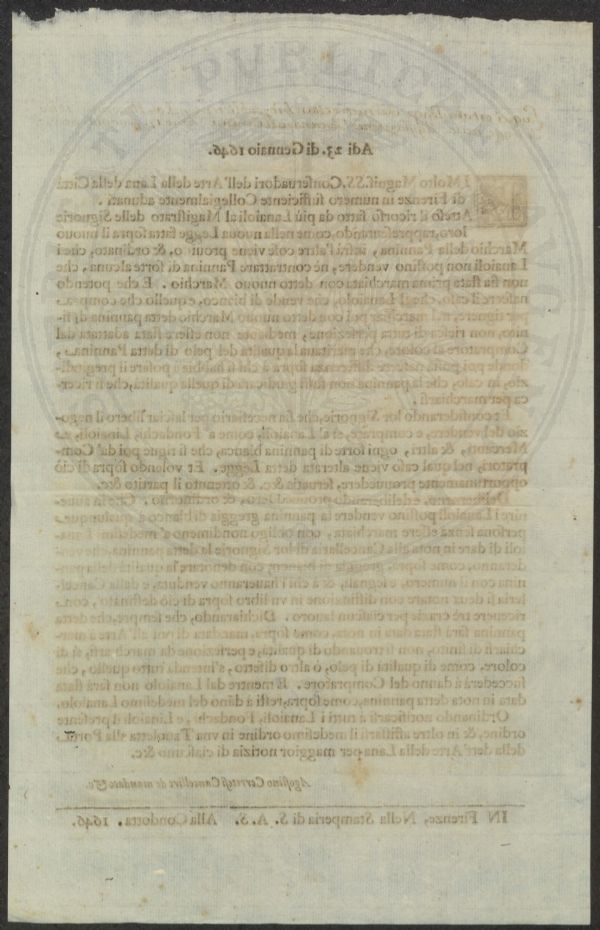 A dì 23. di Gennaio 1646.
I Molto Magnif. SS. Conseruadori dell'Arte della Lana della Città
di Firenze in numero sufficiente Collegialmente adunati.
Atteso il ricorso fatto da più Lanaioli al Magistrato delle Signorie
loro, rappresentando, come nella nuoua Legge fatta sopra il nuouo
Marchio della Pannina, infra l'altre cose viene proui o, & ordinato, che i
Lanaioli non possino vendere, ne contrattare Pannina di sorte alcuna, che
non sia stata prima marchiata con detto nuouo Marchio. E che potendo
nascere il caso, che il Lanaiolo, che vende di bianco, e quello che compra
per tignere, nel marchiar poi con detto nuouo Marchio detta pannina di fi-
nita, non riesca di tutta perfezione, mediante non essere stata adattata dal
Compratore al colore, che meritaua la qualità del pelo di detta Pannina,
donde poi possa nascere differenza sopra à chi si habbia à posare il pregiudi-
zio, in caso, che la pannina non fussi giudicata di quella qualità, che si ricer-
ca per marchiarsi.
Et considerando lor Signorie, che sia necessario per lasciar libero il nego-
zio del vendere, e comprare, sì a' Lanaioli, come a' Fondachi, Linaioli,
Mercanti, & altri, ogni sorte di pannina bianca, che si tigne poi da' Com-
pratori, nel qual caso viene alterata detta Legge. Et volendo sopra di ciò
opportunamente prouuedere, seruatis &c. & ottenuto il partito &c.
Deliberorno, e deliberando prouuiddero, & ordinorno. Che in auue-
nire i Lanaioli possino vendere la pannina greggia di bianco à qualunque
persona senza essere marchiata, con obligo nondimeno a' medesimi Lana-
ioli di dare in nota alla Cancelleria di lor Signorie la detta pannina che ven-
deranno, come sopra, greggia di bianco, con denotare la qualità della pan-
nina con il numero, e segnali, & à chi l'haueranno venduta, e dalla Cancel-
leria si deua notare con distinzione in vn libro sopra di ciò destinato, con
riceuere trè crazie per ciascun lauoro. Dichiarando, che sempre, che detta
pannina sarà stata data in nota, come sopra, mandata di poi all'Arte à mar-
chiarsi di finito, non si trouando di qualità, e perfezione da marchiarsi, sì di
colore, come di qualità di pelo, ò altro difetto, s'intenda tutto quello, che
succederà à danno del Compratore. E mentre dal Lanaiolo non sarà stata
data in nota detta pannina, come sopra, resti à dāno del medesimo Lanaiolo.
Ordinando notificarsi à tutti i Lanaioli, Fondachi, e Linaioli il presente
ordine, & in oltre affissarsi il medesimo ordine in vna Tauoletta alla Porta
della dett'Arte della Lana per maggior notizia di ciascuno &c.
Agostino Cerretesi Cancelliere de mandato &c.
IN Firenze, Nella Stamperia di S. A. S. Alla Condotta. 1646.